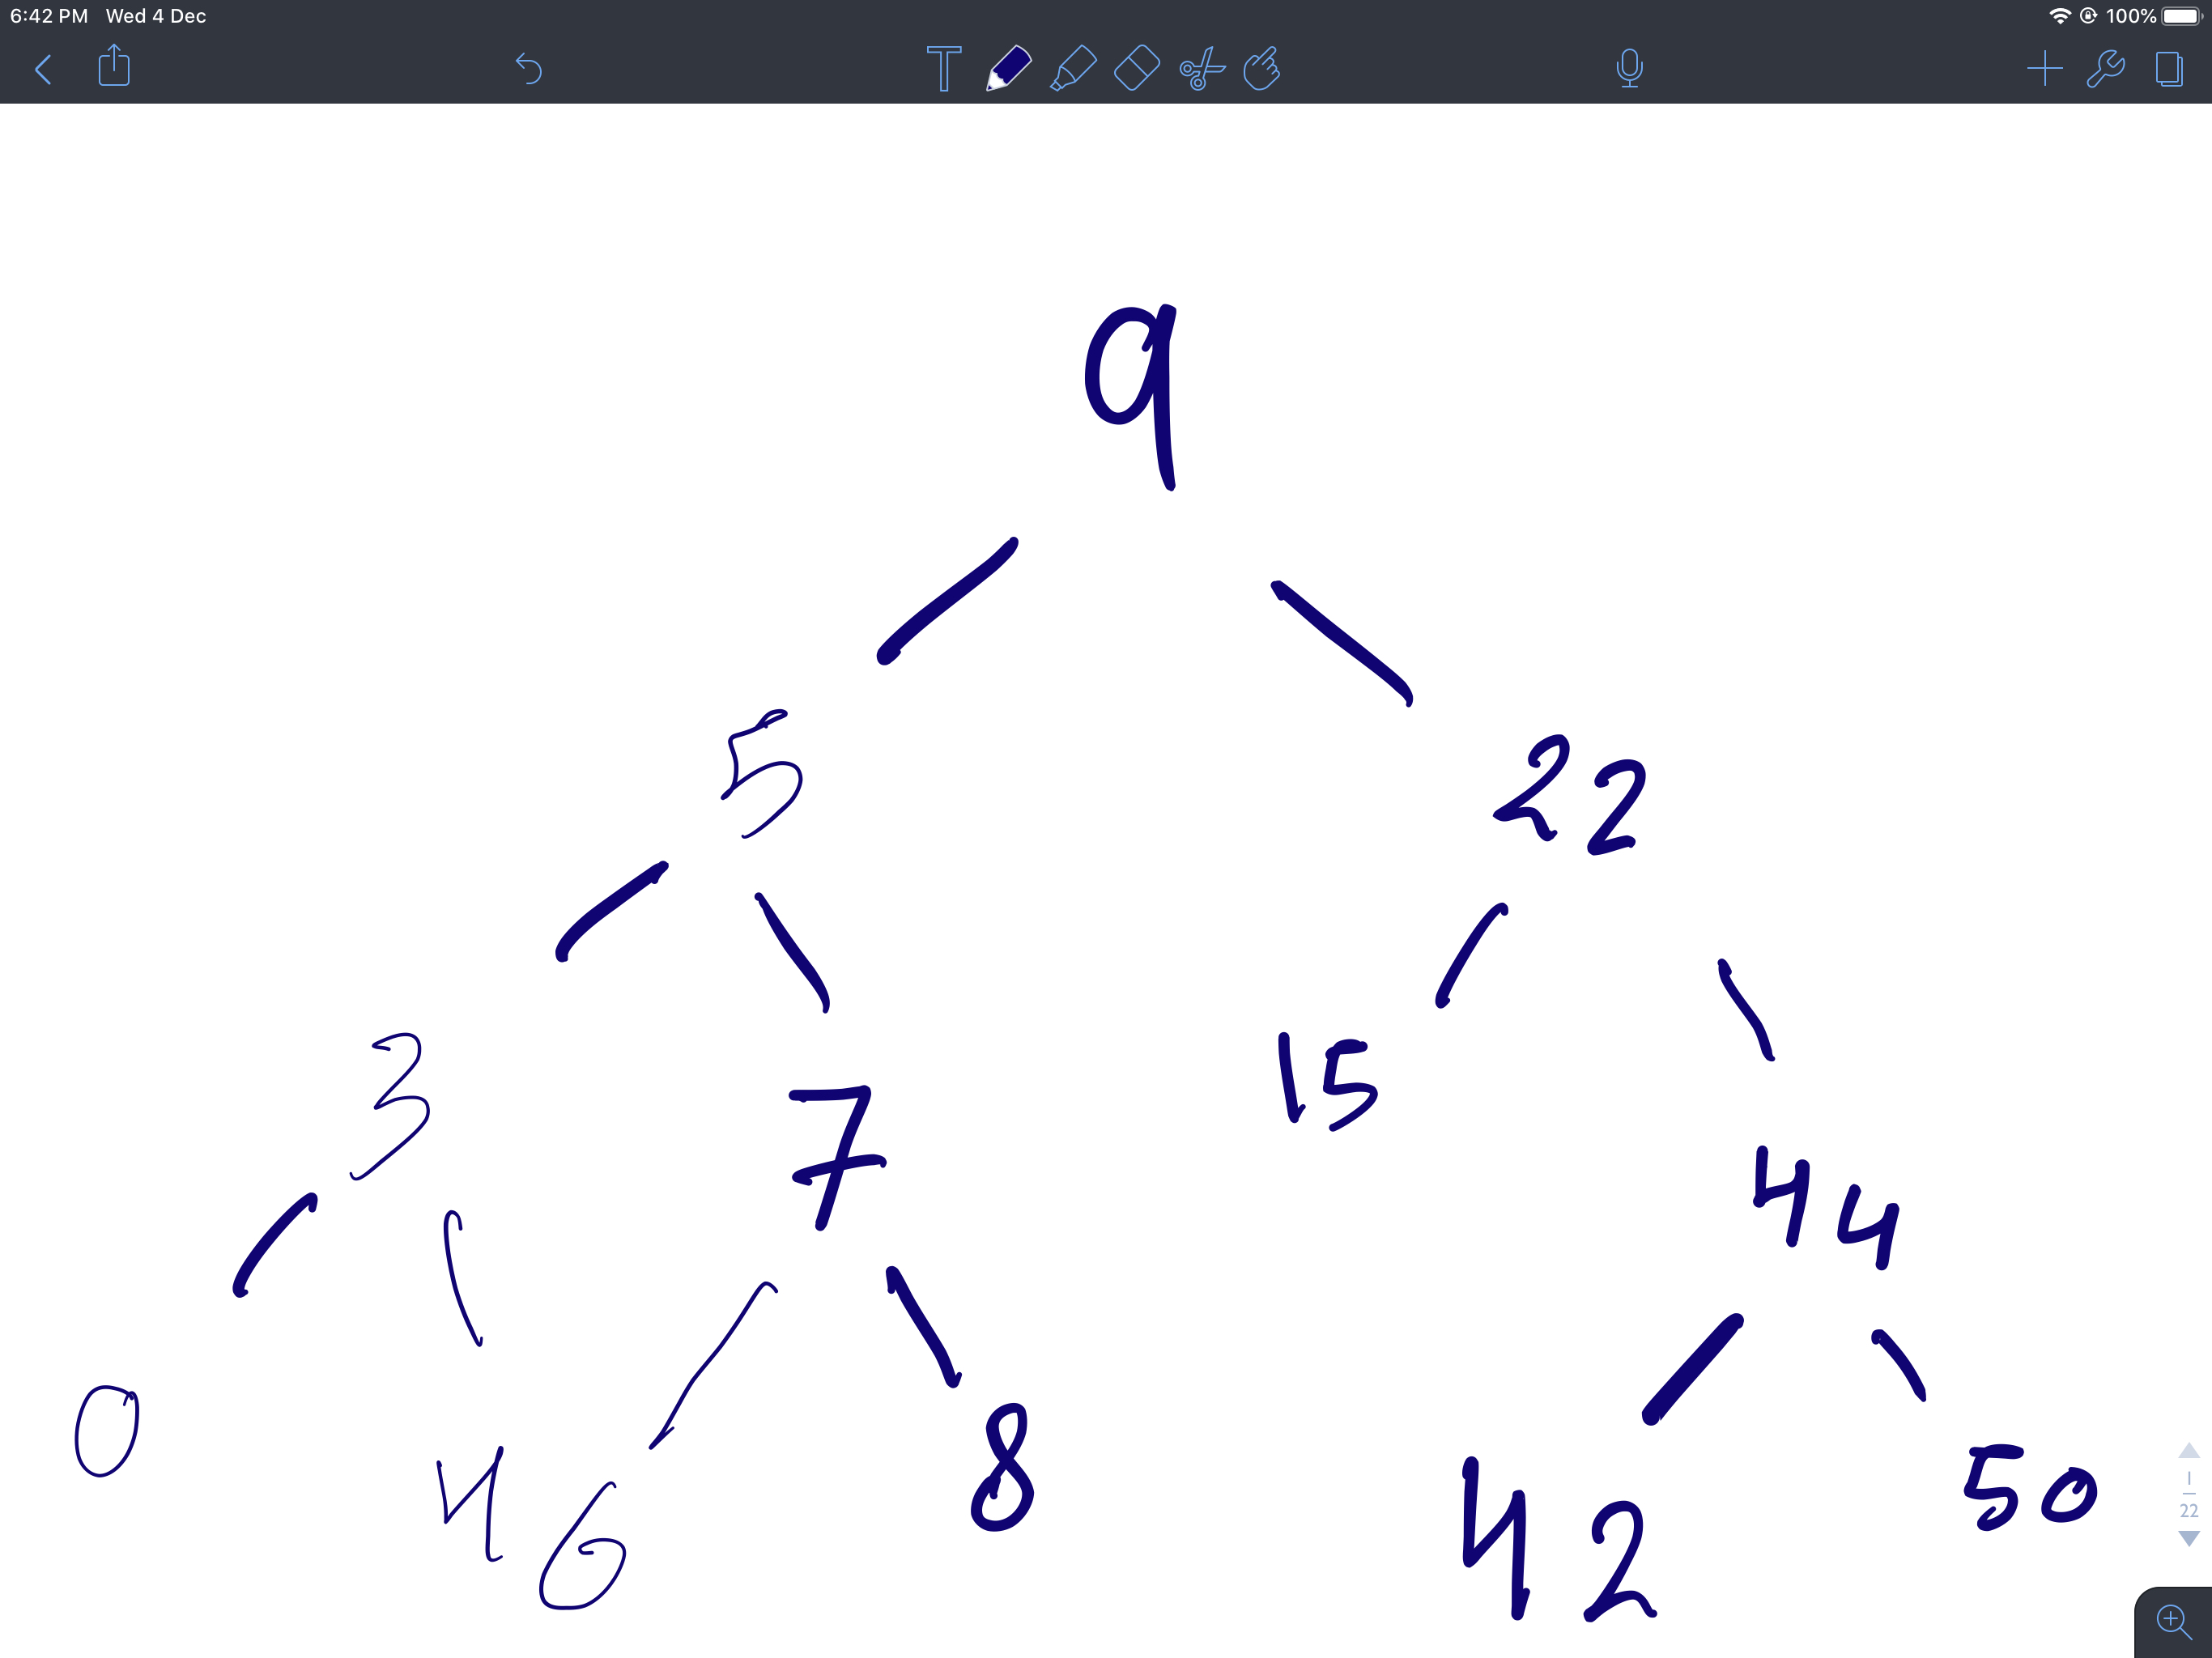 6:42 PM Wed 4 Dec 100%
T
9
5 22
3 7 15 44
0 4 6 8 42 50
1
22